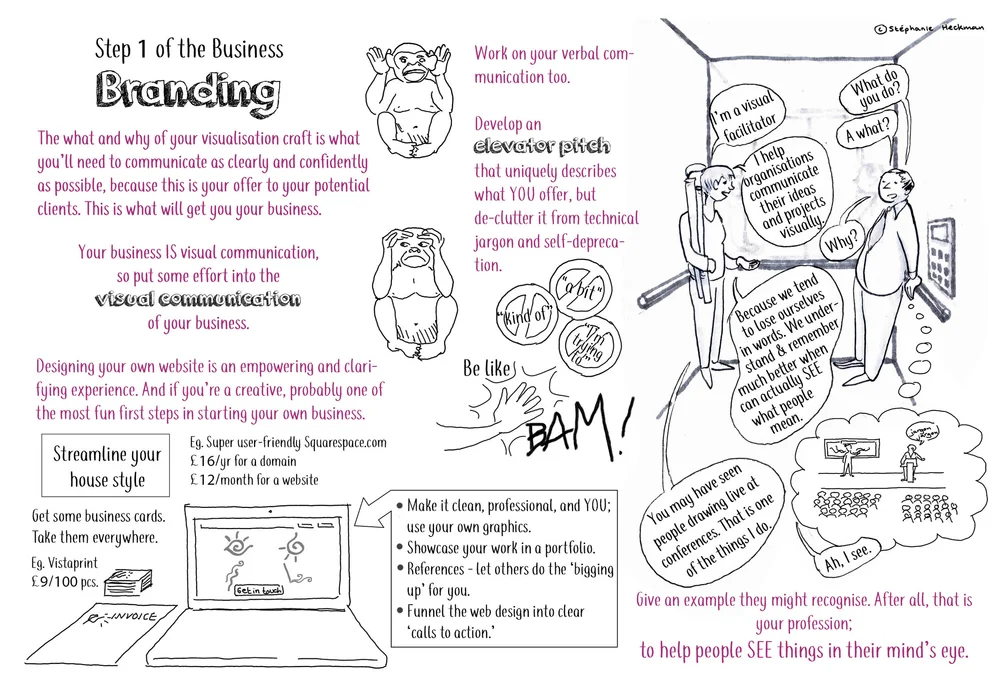 ©Stéphanie Heckman
Step 1 of the Business
Branding
The what and why of your visualisation craft is what
you'll need to communicate as clearly and confidently
as possible, because this is your offer to your potential
clients. This is what will get you your business.
Your business IS visual communication,
so put some effort into the
visual communication
of your business.
Designing your own website is an empowering and clari-
fying experience. And if you're a creative, probably one of
the most fun first steps in starting your own business.
Streamline your
house style
Eg. Super user-friendly Squarespace.com
£16/yr for a domain
£12/month for a website
Get some business cards.
Take them everywhere.
Eg. Vistaprint
£9/100 pcs.
INVOICE
Get in touch
• Make it clean, professional, and YOU;
use your own graphics.
• Showcase your work in a portfolio.
• References - let others do the 'bigging
up' for you.
• Funnel the web design into clear
'calls to action.'
Work on your verbal com-
munication too.
Develop an
elevator pitch
that uniquely describes
what YOU offer, but
de-clutter it from technical
jargon and self-depreca-
tion.
"a bit"
"kind of"
"I'm
trying
to"
Be like
BAM!
What do
you do?
I'm a visual
facilitator
A what?
I help
organisations
communicate
their ideas
and projects
visually.
Why?
Because we tend
to lose ourselves
in words. We under-
stand & remember
much better when
can actually SEE
what people
mean.
You may have seen
people drawing live at
conferences. That is one
of the things I do.
jargon
jargon
Ah, I see.
Give an example they might recognise. After all, that is
your profession;
to help people SEE things in their mind's eye.